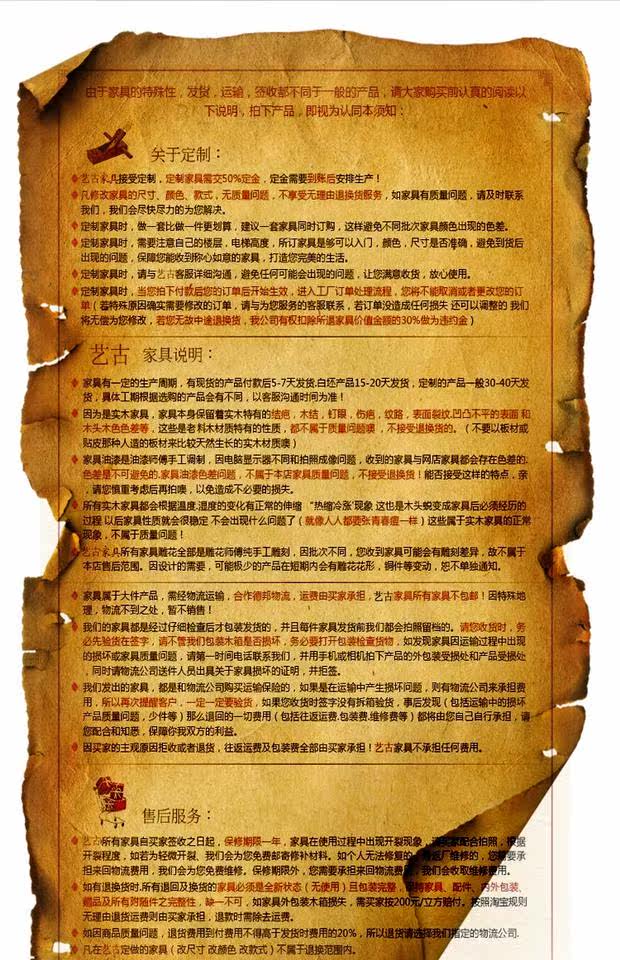 由于家具的特殊性，发货，运输，签收都不同于一般的产品，请大家购买前认真的阅读以
下说明，拍下产品，即视为认同本须知：
关于定制：
艺古家具接受定制，定制家具需交50%定金，定金需要到账后安排生产！
凡修改家具的尺寸、颜色、款式，无质量问题，不享受无理由退换货服务，如家具有质量问题，请及时联系
我们，我们会尽快尽力的为您解决。
定制家具时，做一套比做一件更划算，建议一套家具同时订购，这样避免不同批次家具颜色出现的色差。
定制家具时，需要注意自己的楼层，电梯高度，所订家具是够可以入门，颜色，尺寸是否准确，避免到货后
出现的问题，保障您能收到称心如意的家具，打造您完美的生活。
定制家具时，请与艺古客服详细沟通，避免任何可能会出现的问题，让您满意收货，放心使用。
定制家具时，当您拍下付款后您的订单后开始生效，进入工厂订单处理流程，您将不能取消或者更改您的订
单（若特殊原因确实需要修改的订单，请与为您服务的客服联系，若订单没造成任何损失 还可以调整的 我们
将无偿为您修改，若您无故中途退换货，我公司有权扣除所退家具价值金额的30%做为违约金）
艺古 家具说明：
家具有一定的生产周期，有现货的产品付款后5-7天发货,白坯产品15-20天发货，定制的产品一般30-40天发
货，具体工期根据选购的产品会有不同，以客服沟通时间为准！
因为是实木家具，家具本身保留着实木特有的结疤，木结，钉眼，伤疤，纹路，表面裂纹,凹凸不平的表面 和
木头木色色差等，这些是老料木材质特有的性质，都不属于质量问题噢 ，不接受退换货的。（不要以板材或
贴皮那种人造的板材来比较天然生长的实木材质噢）
家具油漆是油漆师傅手工调制，因电脑显示器不同和拍照成像问题，收到的家具与网店家具都会存在色差的.
色差是不可避免的.家具油漆色差问题，不属于本店家具质量问题，不接受退换货！能否接受这样的特点，亲
，请您慎重考虑后再拍噢，以免造成不必要的损失。
所有实木家具都会根据温度.湿度的变化有正常的伸缩 “热缩冷涨”现象 这也是木头蜕变成家具后必须经历的
过程 以后家具性质就会很稳定 不会出现什么问题了（就像人人都要张青春痘一样）这些属于实木家具的正常
现象，不属于质量问题！
艺古家具所有家具雕花全部是雕花师傅纯手工雕刻，因批次不同，您收到家具可能会有雕刻差异，故不属于
本店售后范围。因设计的需要，可能极少的产品在短期内会有雕花花形，铜件等变动，恕不单独通知。
家具属于大件产品，需经物流运输，合作德邦物流，运费由买家承担，艺古家具所有家具不包邮！因特殊地
理，物流不到之处，暂不销售！
我们的家具都是经过仔细检查后才包装发货的，并且每件家具发货前我们都会拍照留档的。请您收货时，务
必先验货在签字，请不管我们包装木箱是否损坏，务必要打开包装检查货物，如发现家具因运输过程中出现
的损坏或家具质量问题，请第一时间电话联系我们，并用手机或相机拍下产品的外包装受损处和产品受损处
，同时请物流公司送件人员出具关于家具损坏的证明，并拒签。
我们发出的家具，都是和物流公司购买运输保险的，如果是在运输中产生损坏问题，则有物流公司来承担费
用，所以再次提醒客户，一定一定要验货，如果您收货时签字没有拆箱验货，事后发现（包括运输中的损坏
产品质量问题，少件等）那么退回的一切费用（包括往返运费.包装费.维修费等）都将由您自己自行承担，请
您配合和知悉，保障你我双方的利益。
因买家的主观原因拒收或者退货，往返运费及包装费全部由买家承担！艺古家具不承担任何费用。
售后服务：
艺古所有家具自买家签收之日起，保修期限一年，家具在使用过程中出现开裂现象，请买家配合拍照，根据
开裂程度，如若为轻微开裂，我们会为您免费邮寄修补材料。如个人无法修复的，返厂维修的，您需要承
担来回物流费用，我们会为您免费维修。保修期限外，您需要承担来回物流费用，我们会收取维修费用。
如有退换货时.所有退回及换货的家具必须是全新状态（无使用）且包装完整，保持家具、配件、内外包装、
赠品及所有附随件之完整性，缺一不可，如家具外包装木箱损失，需买家按200元/立方赔付。按照淘宝规则
无理由退货运费则由买家承担，退款时需除去运费。
如因商品质量问题，退货费用到付费用不得高于发货时费用的20%，所以退货请选择我们指定的物流公司.
凡在艺古定做的家具（改尺寸 改颜色 改款式）不属于退换范围内。